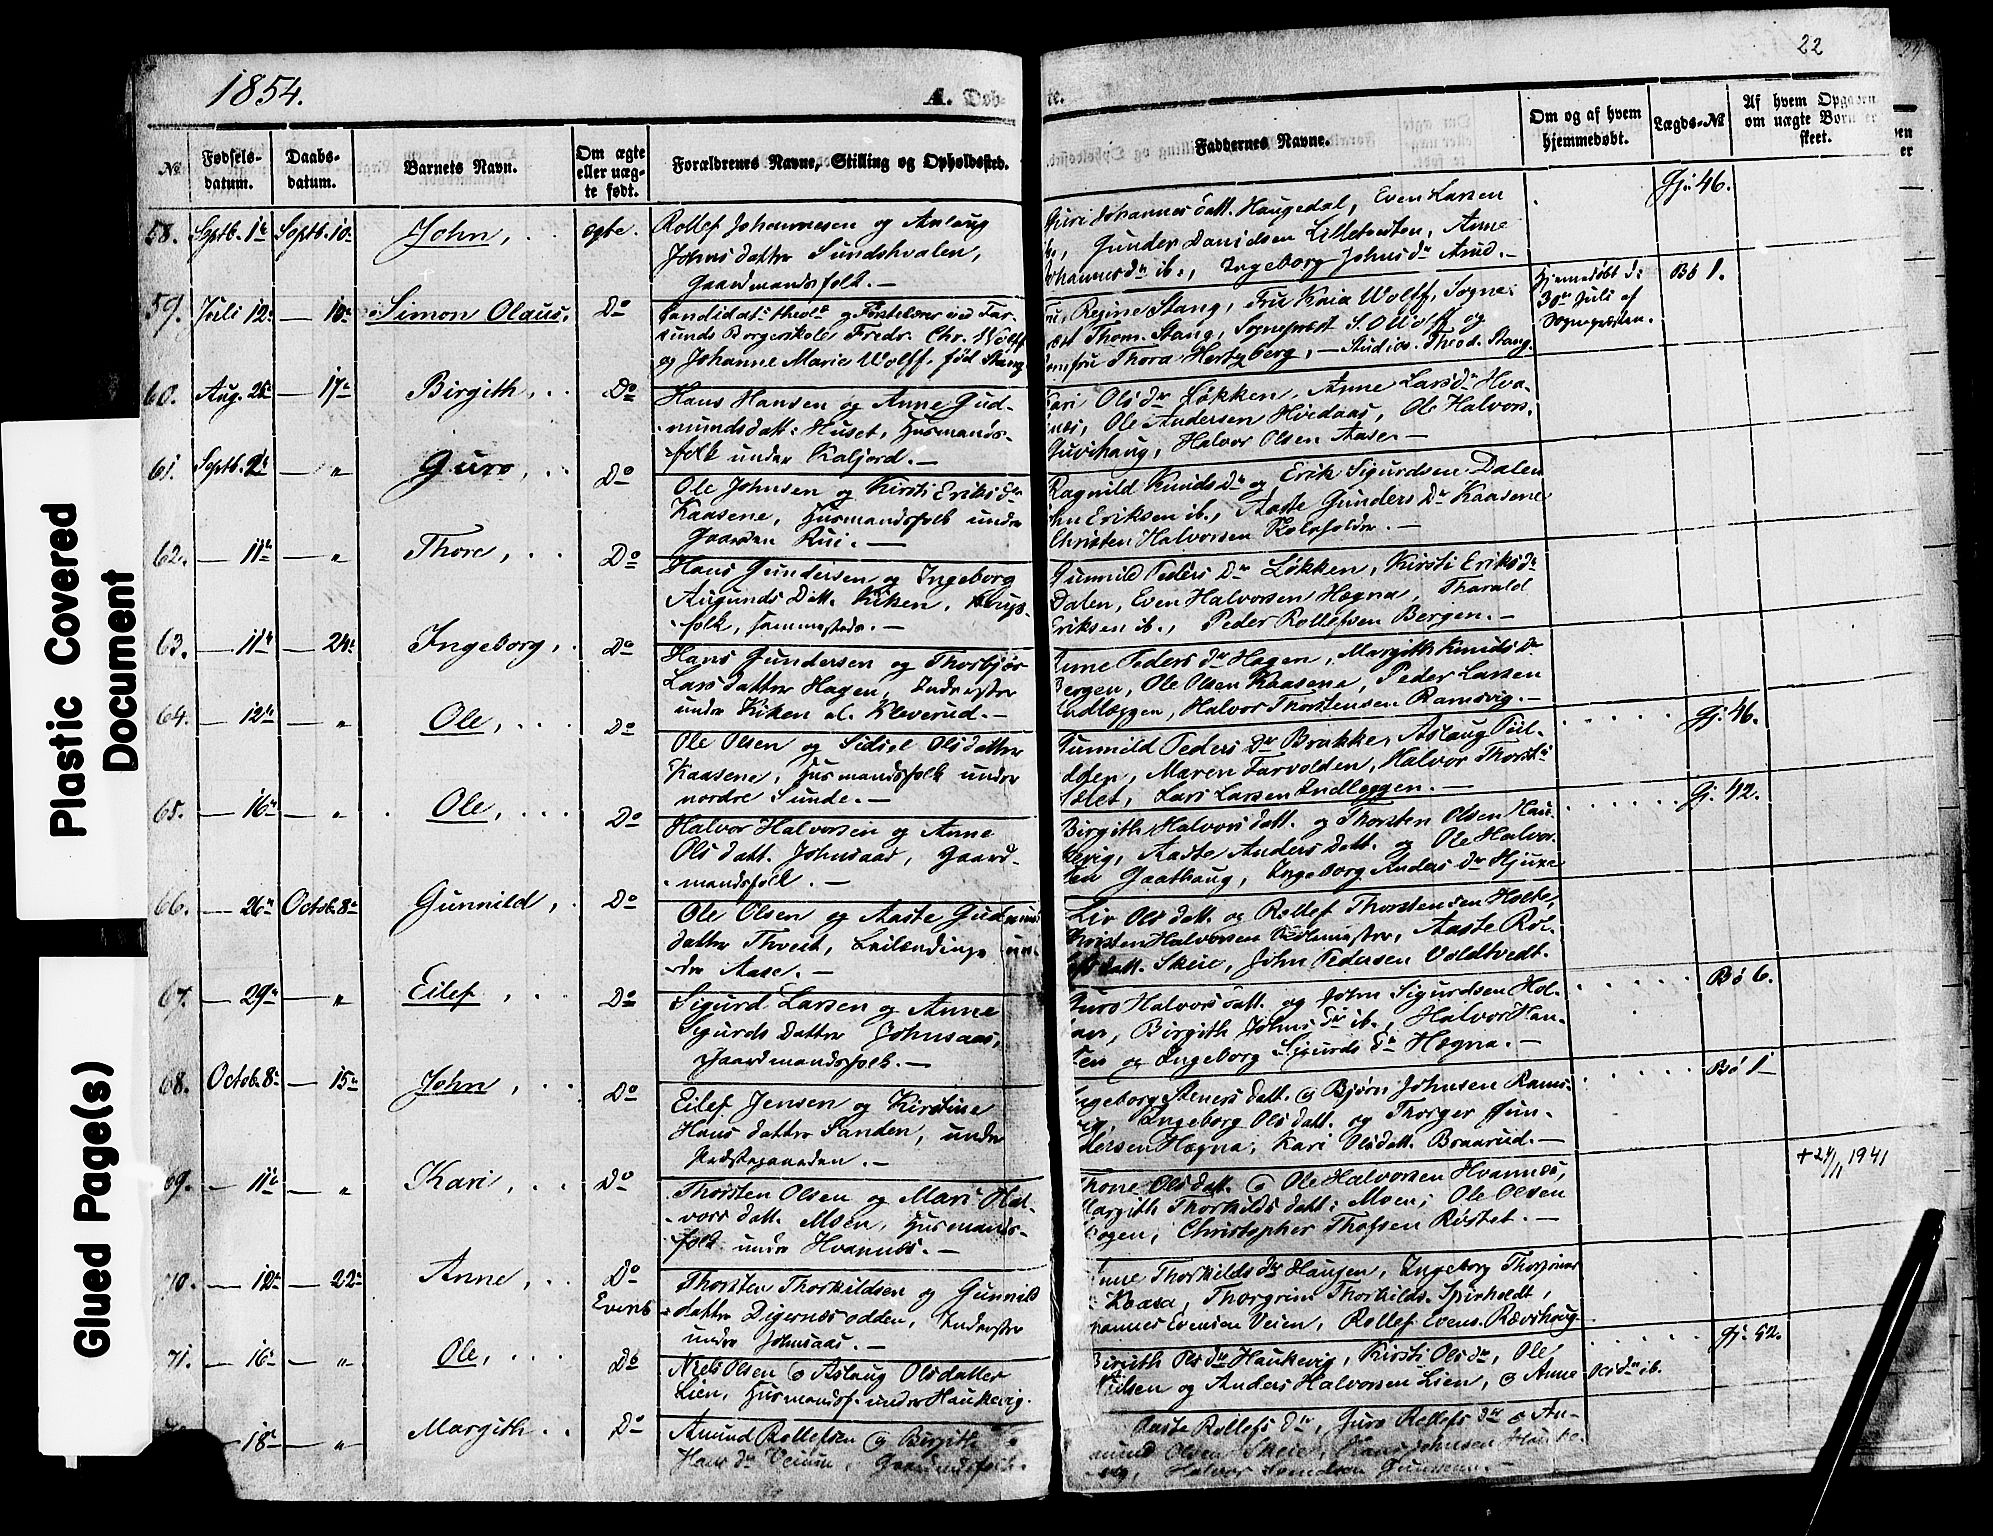 22
1854.
A. Døb-
te.
No.
Fødsels-
datum.
Daabs-
datum.
Barnets Navn.
Om ægte
eller uæg-
te født.
Forældrenes Navne, Stilling og Opholdssted.
Faddernes Navne.
Om og af hvem
hjemmedøbt.
Lægds-No.
Af hvem Opgaven
om uægte Børn er
skeet.
58. Septb. 1te Septb. 10de John, ægte.
Rollef Johannesen og Aslaug
Johnsdatter Sundskvalen,
Gaardmandsfolk. —
Guri Johannesdatt. Haugedal, Even Larsen
ib., Gunder Danielsen Lilletveten, Anne
Johannesdr ib., Ingeborg Johnsdr Arud. —
Gj. 46.
59. Juli 12te — 10de Simon Olaus. Do
Candidat theol. og Førstelærer ved Far-
sunds Borgerskole Fredr. Chr. Wolff
og Johanne Marie Wolff, fød Stang
Fru Regine Stang, Fru Kaia Wolff, Sogne-
præst Thom. Stang, Sognepræst S. O. Wolff og
Jomfru Thora Hertzberg, — Studios. Theod. Stang.
Hjemmedøbt d:
30te Juli af
Sognepræsten.
Bø 1.
60. Aug. 25de — 17de Birgith, Do
Hans Hansen og Anne Gud-
mundsdatt: Huset, Husmands-
folk under Kaljord. —
Kari Olsdr Løkken, Anne Larsdr Hva-
næs, Ole Andersen Hvedaas, Ole Halvors.
Guvihaug, Halvor Olsen Aase. —
61. Septb. 2de — " Guro, Do
Ole Johnsen og Kirsti Eriksdr
Kaasene, Husmandsfolk under
Gaarden Rui. —
Ragnild Knudsdr og Erik Sigurdsen Dalen
John Eriksen ib., Aaste Gundersdr Kaasene
Christen Halvorsen Kolafoldr. —
62. — 11te — " Thore, Do
Hans Gundersen og Ingeborg
Augunds Datt. Kiken,
folk, sammesteds. —
Gunnild Peders Dr Løkken, Kirsti Eriksdr
Dalen, Even Halvorsen Hegna, Tharald
Eriksen ib., Peder Rollefsen Bergen. —
63. — 11te — 24de Ingeborg, Do
Hans Gundersen og Thorbjør
Larsdatter Hagen, Inderster
under Kiken el. Kleverud. —
Anne Pedersdr Hagen, Margith Knudsdr
Bergen, Ole Olsen Kaasene, Peder Larsen
Indlæggen, Halvor Thorstensen Ramsvig. —
64. — 12te — " Ole, Do
Ole Olsen og Sidsel Olsdatter
Kaasene, Husmandsfolk under
nordre Sunde. —
Gunnild Peders Dr Brukke, Aslaug
Maren Tarvolden, Halvor
Lars Larsen Indleggen. —
Gj. 46.
65. — 16de — " Ole, Do
Halvor Halvorsen og Anne
Olsdatt. Johnsaas, Gaard-
mandsfolk. —
Birgith Halvorsdatt. og Thorsten Olsen Hau-
kevig, Aaste Anders Datt. og Ole Halvor-
sen Gaathaug, Ingeborg Anders Dr
Gj. 42.
66. — 26de Octob. 8de Gunnild, Do
Ole Olsen og Aaste Gudmunds-
datter Thveit, Leilændinge un-
der Aase. —
Liv Olsdatt. og Rollef Thorstensen Holte,
Christen Halvorsen Aaste Rol-
lefsdatt. Skeie, John Pedersen Voldtvedt.
67. — 29de — " Eilef, Do
Sigurd Larsen og Anne
Sigurds Datter Johnsaas,
Gaardmandsfolk. —
Guro Halvorsdatt. og John Sigurdsen Hol-
tan, Birgith Johnsdr ib., Halvor Han-
sen og Ingeborg Sigurdsdr Hegna. —
Bø 6.
68. Octob. 8de — 15de John, Do
Eilef Jensen og Kirstine
Hansdatter Sanden, under
Præstegaarden. —
Ingeborg Stenersdatt. & Bjørn Johnsen Rams-
vig, Ingeborg Olsdatt. og Thorger Gun-
dersen Hegna, Kari Olsdatt. Braarud. —
Bø 1
69. — 11te — " Kari, Do
Thorsten Olsen og Mari Hal-
vorsdatt. Moen, Husmands-
folk under Hvannæs. —
Thone Olsdatt. & Ole Halvorsen Hvannæs,
Margith Thorkildsdatt: Moen, Ole Olsen
Christopher Thofsen Røstet. —
+24/11 1941
70. — 12te — 22de Anne, Do
Thorsten Thorkildsen og Gunnild Evens-
datter Digernæsodden, Inderster
under Johnsaas. —
Anne Thorkildsdr Haugen, Ingeborg
Kaasa, Thorgrim Thorkilds.
Johannes Evensen Veien, Rollef Evens. Rævehaug
71. — 16de — " Ole, Do
Niels Olsen & Aslaug Olsdatter
Lien, Husmandsf. under Haukevig.
Birgith Olsdr Haukevig, Kirsti Olsdr, Ole
Nielsen og Anders Halvorsen Lien, & Anne Olsdr ib.
Gj. 52.
— 18de — " Margith, Do
Amund Rollefsen & Birgith
Hansdr Veium, Gaardmandsfolk.
Aaste Rollefsdr, Guro Rollefsdr & An-
mund Olsen Skeie, Hans Johnsen Hauke-
vig, Halvor
Plastic Covered
Document
Glued Page(s)